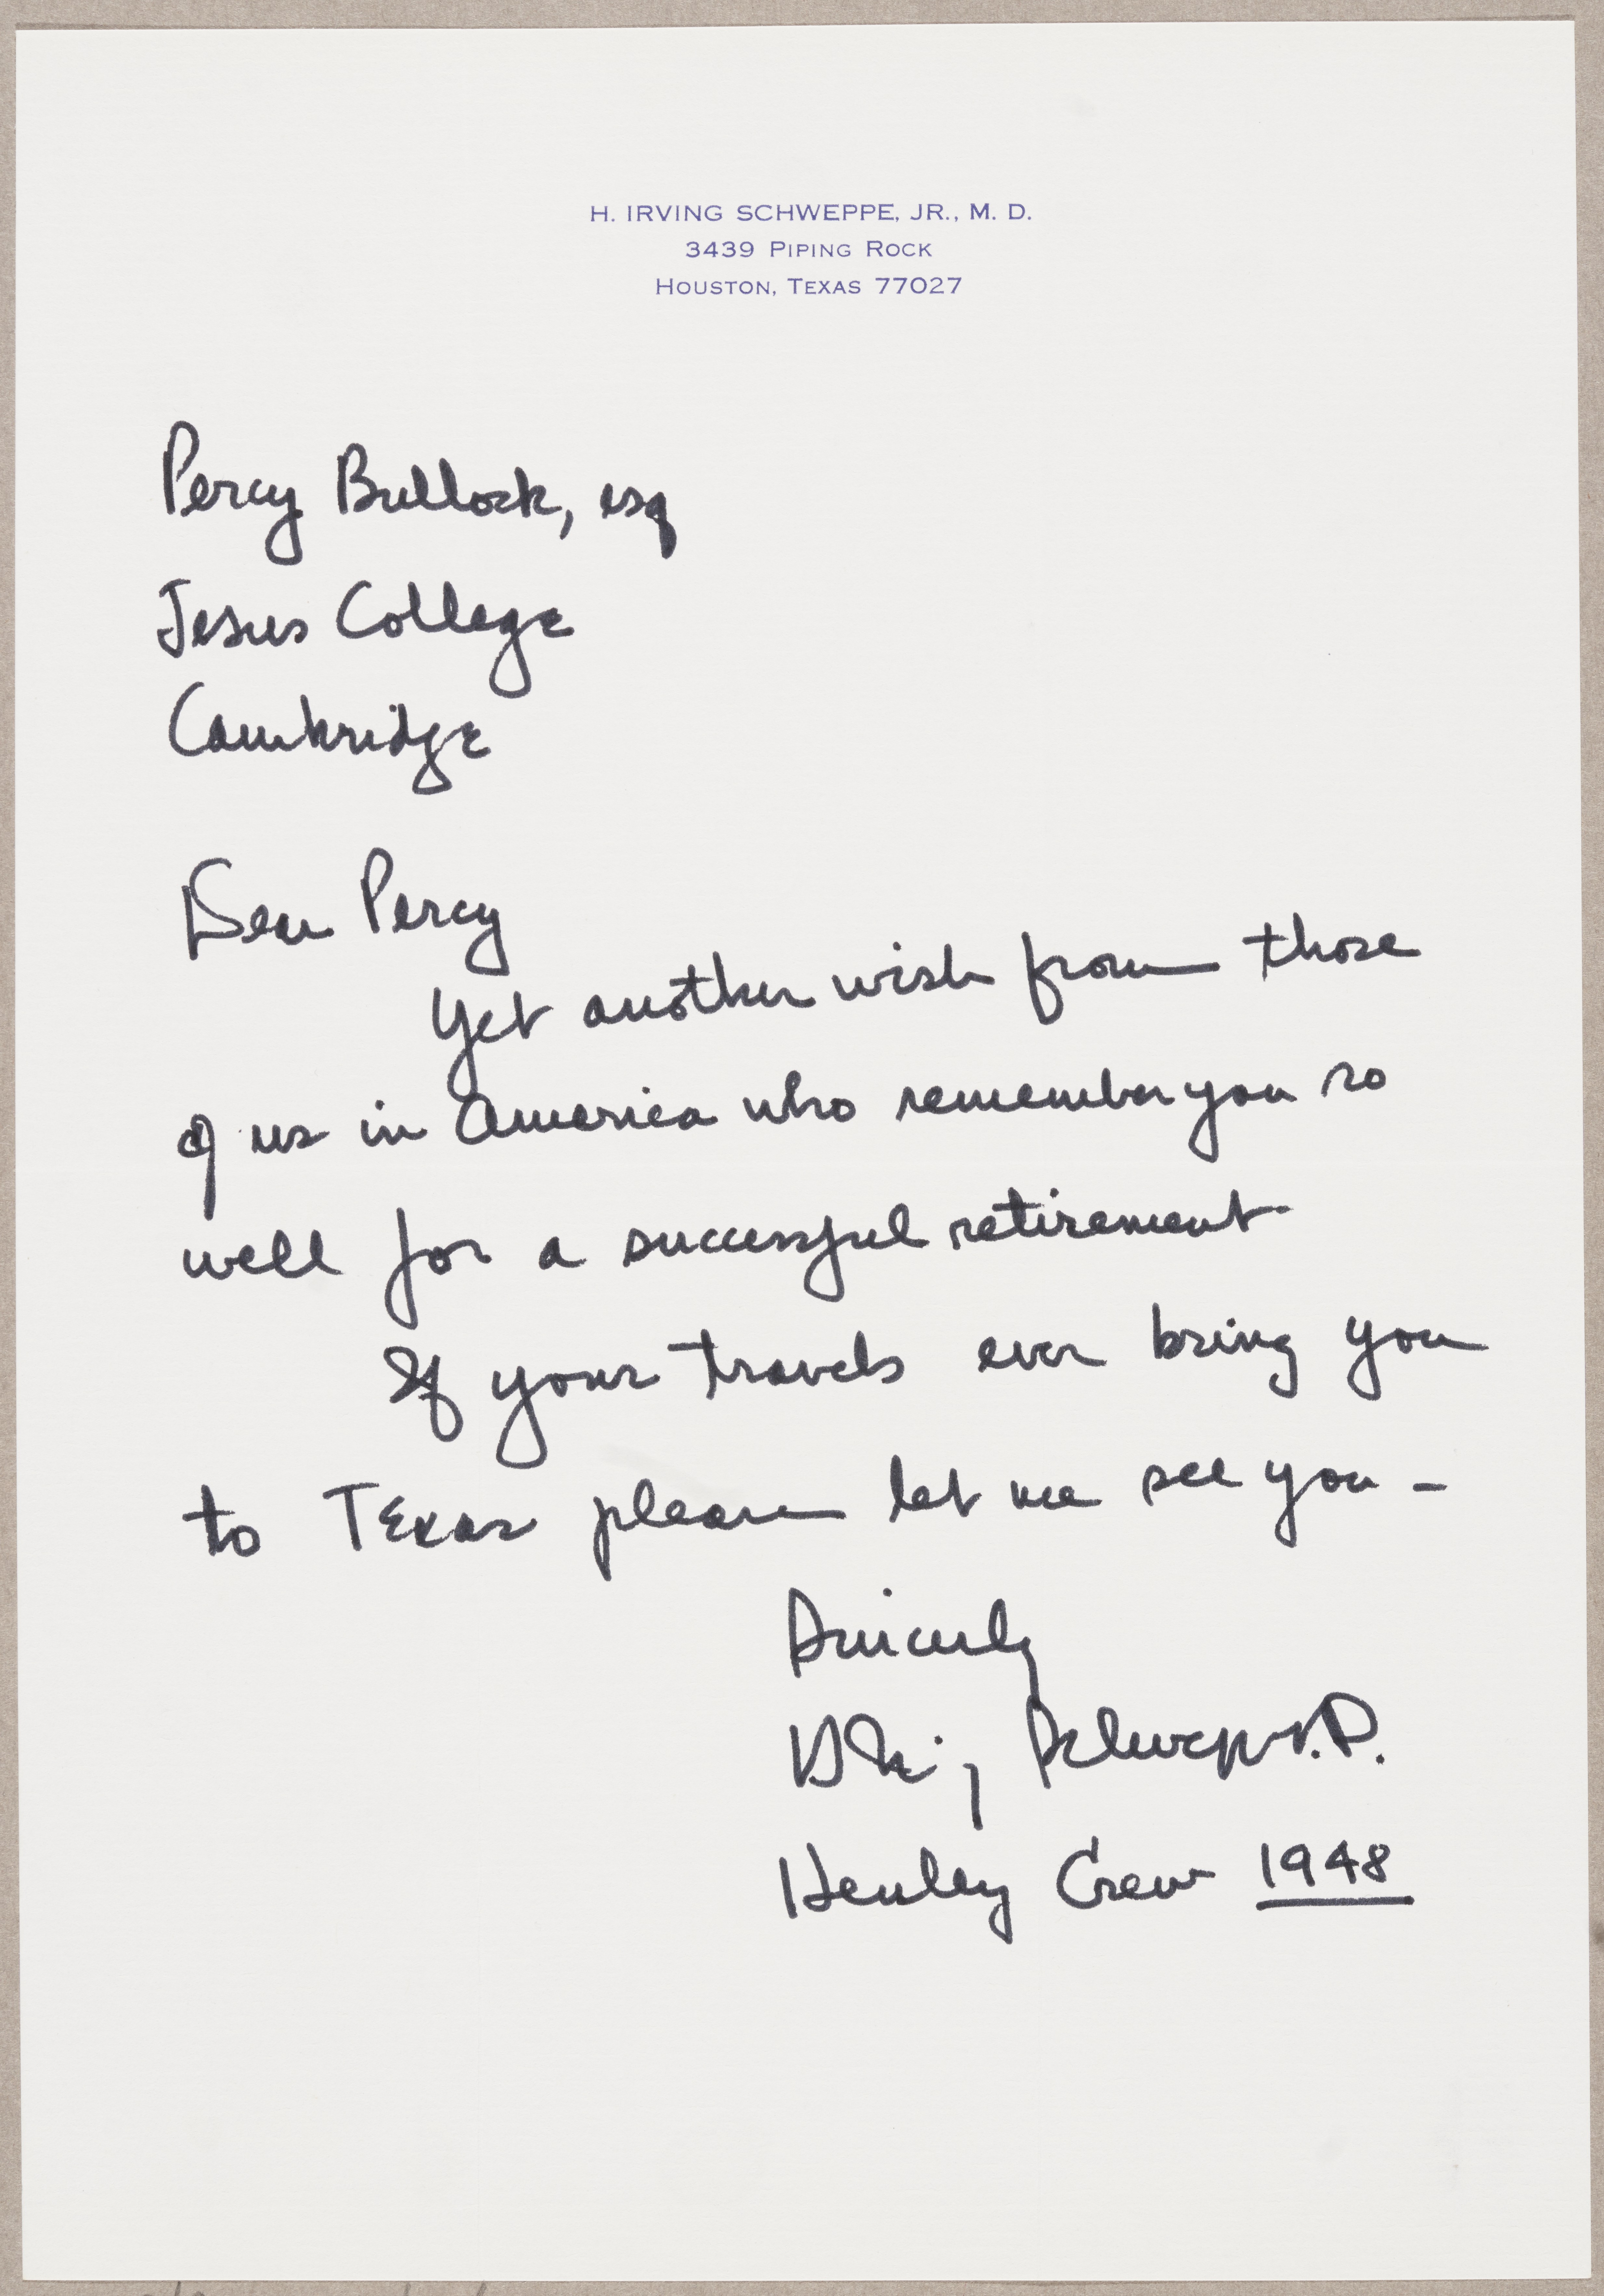 H. IRVING SCHWEPPE, JR., M. D.
3439 PIPING ROCK
HOUSTON, TEXAS 77027
Percy Bullock, esq
Jesus College
Cambridge
Dear Percy
Yet another wish from those
of us in America who remember you so
well for a successful retirement
If your travels ever bring you
to Texas please let me see you -
Sincerely
Schweppe
Henley Crew 1948